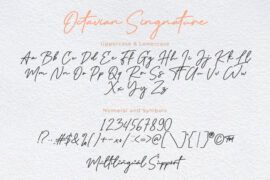 Octavian Singnature
Uppercase & Lowercase
Aa Bb Cc Dd Ee Ff Gg Hh Ii Jj Kk Ll
Mm Nn Oo Pp Qq Rr Ss Tt Uu Vv Ww
Xx Yy Zz
Numeral and Symbols
1234567890
Multilingual Support